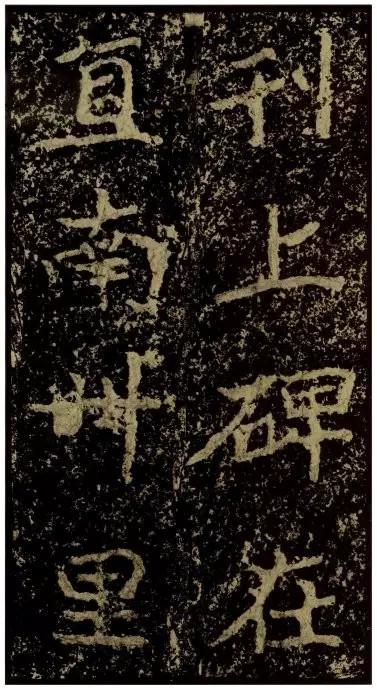 刊上碑在
直南卌里